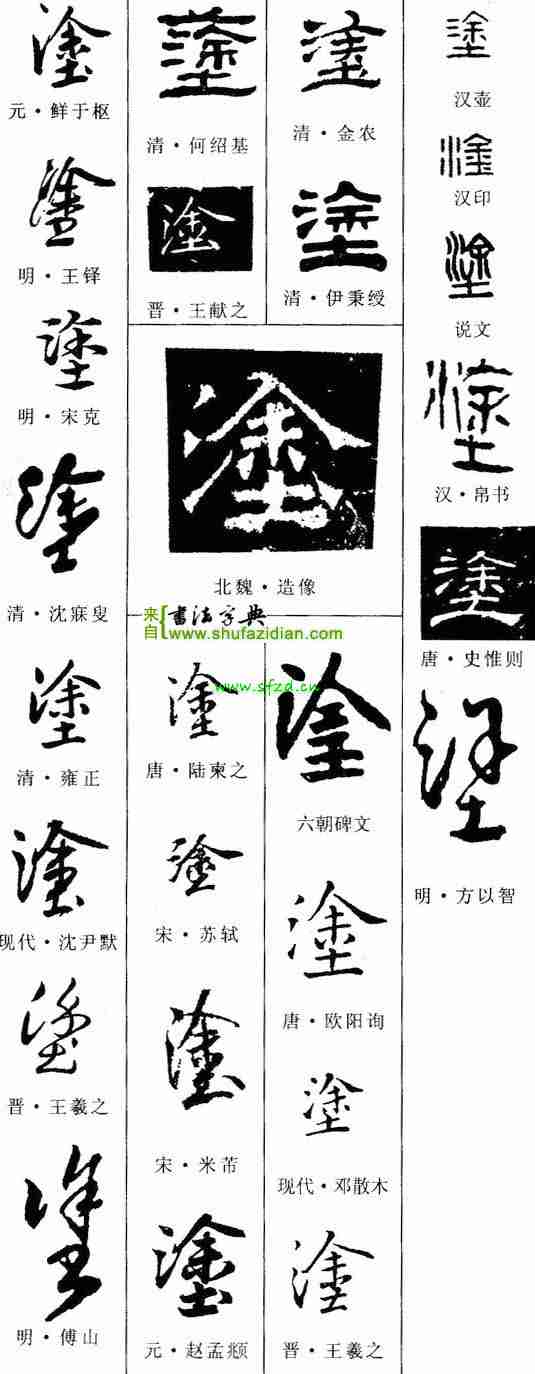 塗
元・鲜于枢
塗
明・王铎
塗
明・宋克
塗
清・沈寐叟
塗
清・雍正
塗
现代・沈尹默
塗
晋・王羲之
塗
明・傅山
塗
清・何绍基
塗
晋・王献之
塗
清・金农
塗
清・伊秉绶
塗
北魏・造像
来自
书法字典
www.shufazidian.com
www.sfzd.cn
塗
唐・陆柬之
塗
宋・苏轼
塗
宋・米芾
塗
元・赵孟頫
塗
六朝碑文
塗
唐・欧阳询
塗
现代・邓散木
塗
晋・王羲之
塗
汉壶
塗
汉印
塗
说文
塗
汉・帛书
塗
唐・史惟则
塗
明・方以智